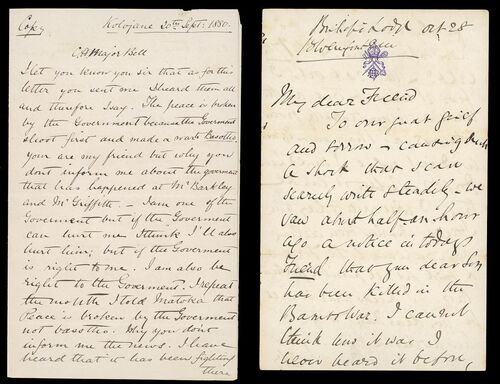 Copy
Kolojane 20th Sept: 1880.
C H Major Bell
I let you know you sir that as for this
letter you sent me I heard them all
and therefore I say. The peace is broken
by the Government because the Goverment
shoot first and made a war to Basottos
your are my friend but why you
dont inform me about the goverment
that has happened at Mr Barkley
and Mr Griffith. - I am one of the
Goverment but if the Goverment
can hurt me I think I'll also
hurt him; but if the Goverment
is right to me. I am also be
right to the Goverment. I repeat
the mouth I told Matoka that
Peace is broken by the Goverment
not basottos. Why you dont
inform me the news. I have
heard that it has been fighting
there
Bishop's Lodge Oct 28
My dear Friend
To our great grief
and sorrow - causing
a shock that I can
scarcely write steadily - we
saw about half-an-hour
ago a notice in todays
Friend that your dear Son
has been killed in the
Basuto War. I cannot
think how it was. I
never heard it before,